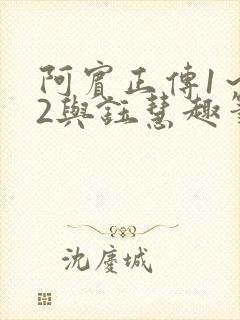 阿賓正傳1~
2與鈺慧趣
沈慶城